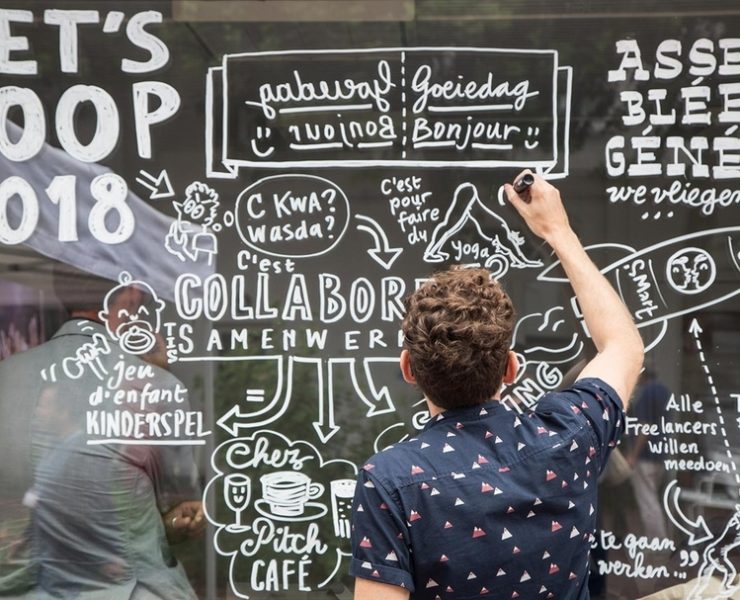 ET'S
OOP
018
Goeiedag
Bonjour Bonjour
ASSE
BLÉE
GÉNÉ
we vliegen
...
C KWA?
wasda?
C'est
pour
faire
du
yoga
C'est
COLLABOR
'TIS
SAMENWER
SMart
jeu
d'enfant
KINDERSPEL
=
ING
Chez
Pitch
CAFÉ
Alle
Freelancers
willen
meedoen
te gaan
werken..."